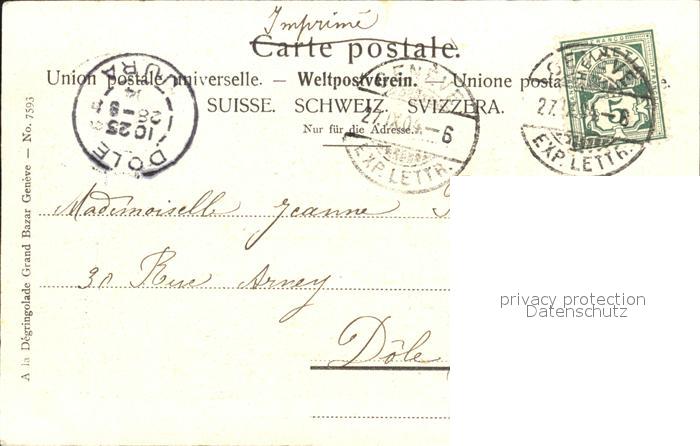 Imprimé
Carte postale.
Union postale universelle. — Weltpostverein. — Unione posta
SUISSE. SCHWEIZ. SVIZZERA.
Nur für die Adresse.
GENÈVE
27.IX.
–6
EXP. LETTR.
HELVETIA
FRANCO
5
GENÈVE
27.
–6
EXP. LETTR.
DOLE
JURA
Mademoiselle Jeanne
30 Rue Arney
Dôle
A la Dégringolade Grand Bazar Genève — No. 7593
privacy protection
Datenschutz